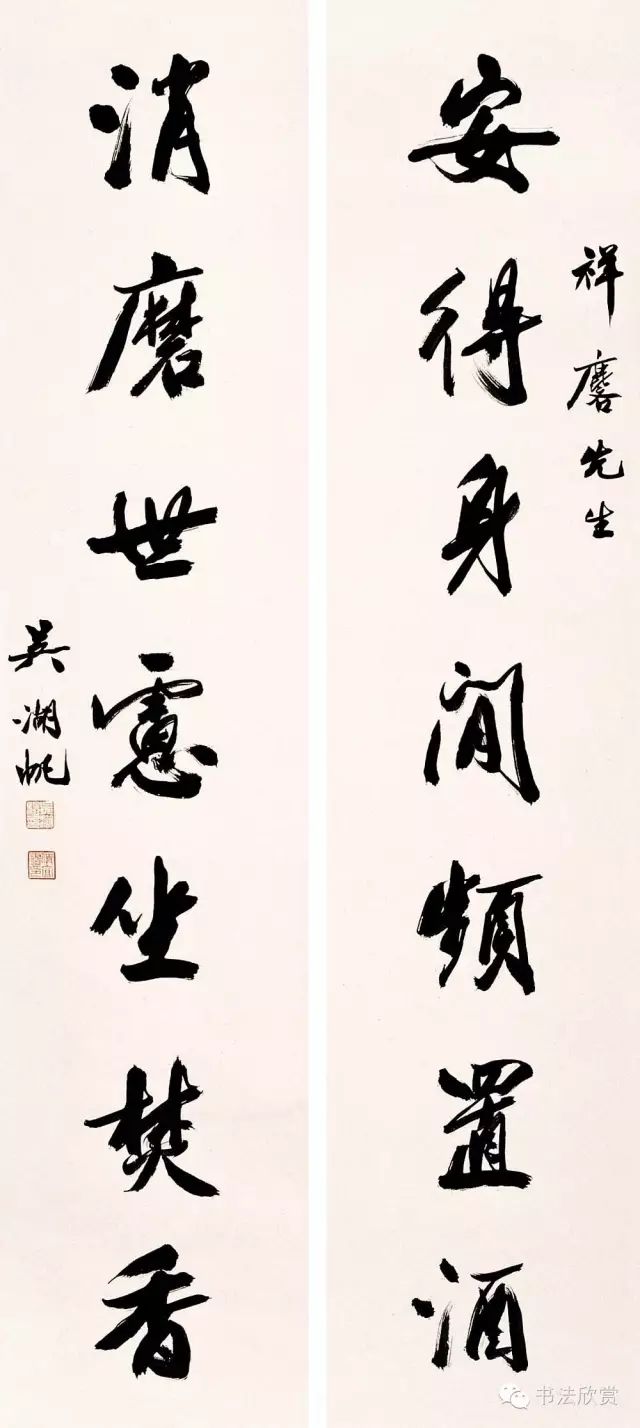 祥麐先生
安得身閒頻置酒
消磨世慮坐焚香
吳湖帆
书法欣赏